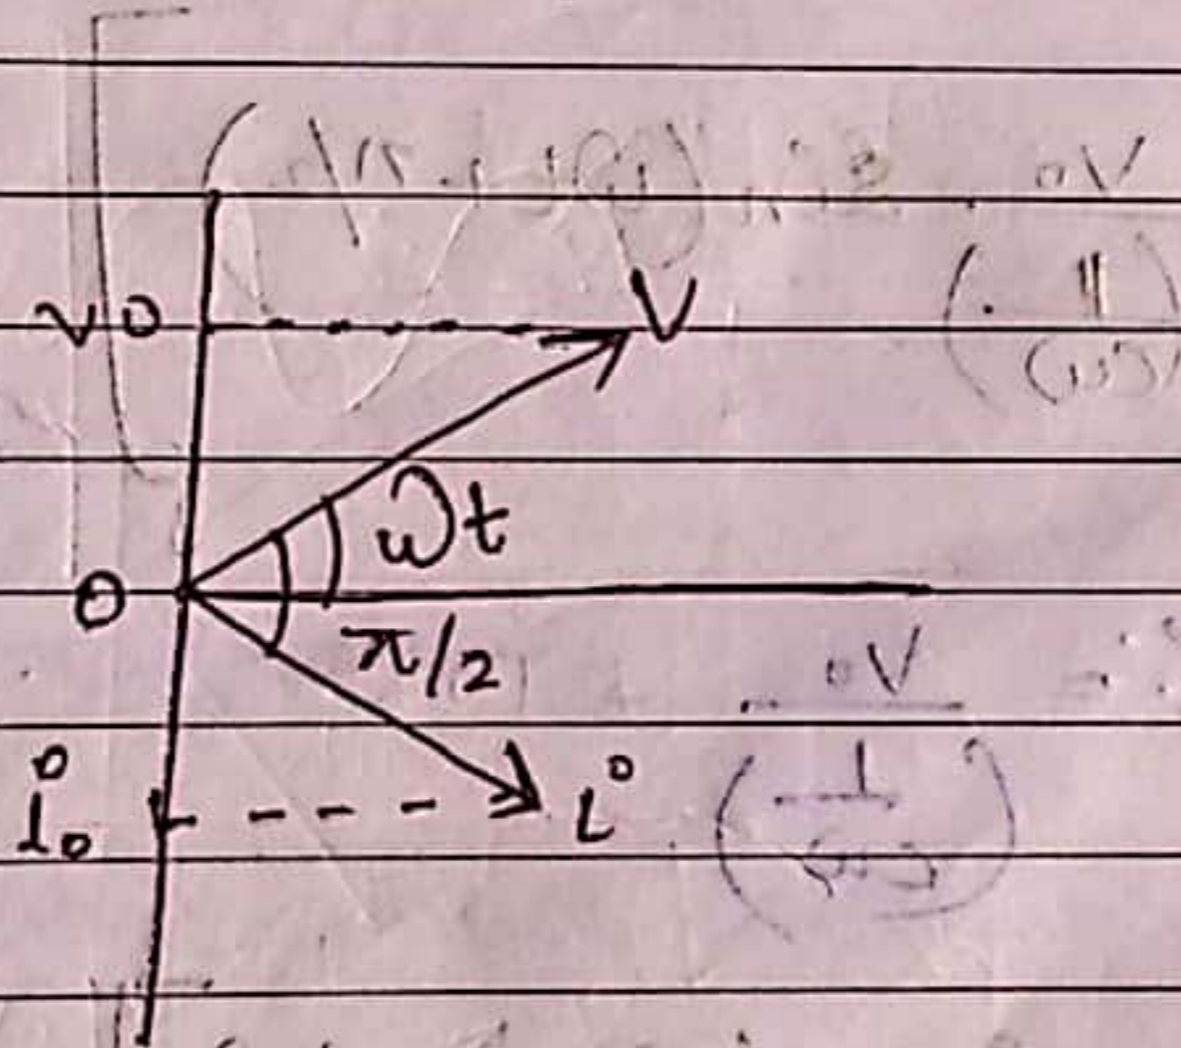 v0 V
ωt
0
π/2
i0 i